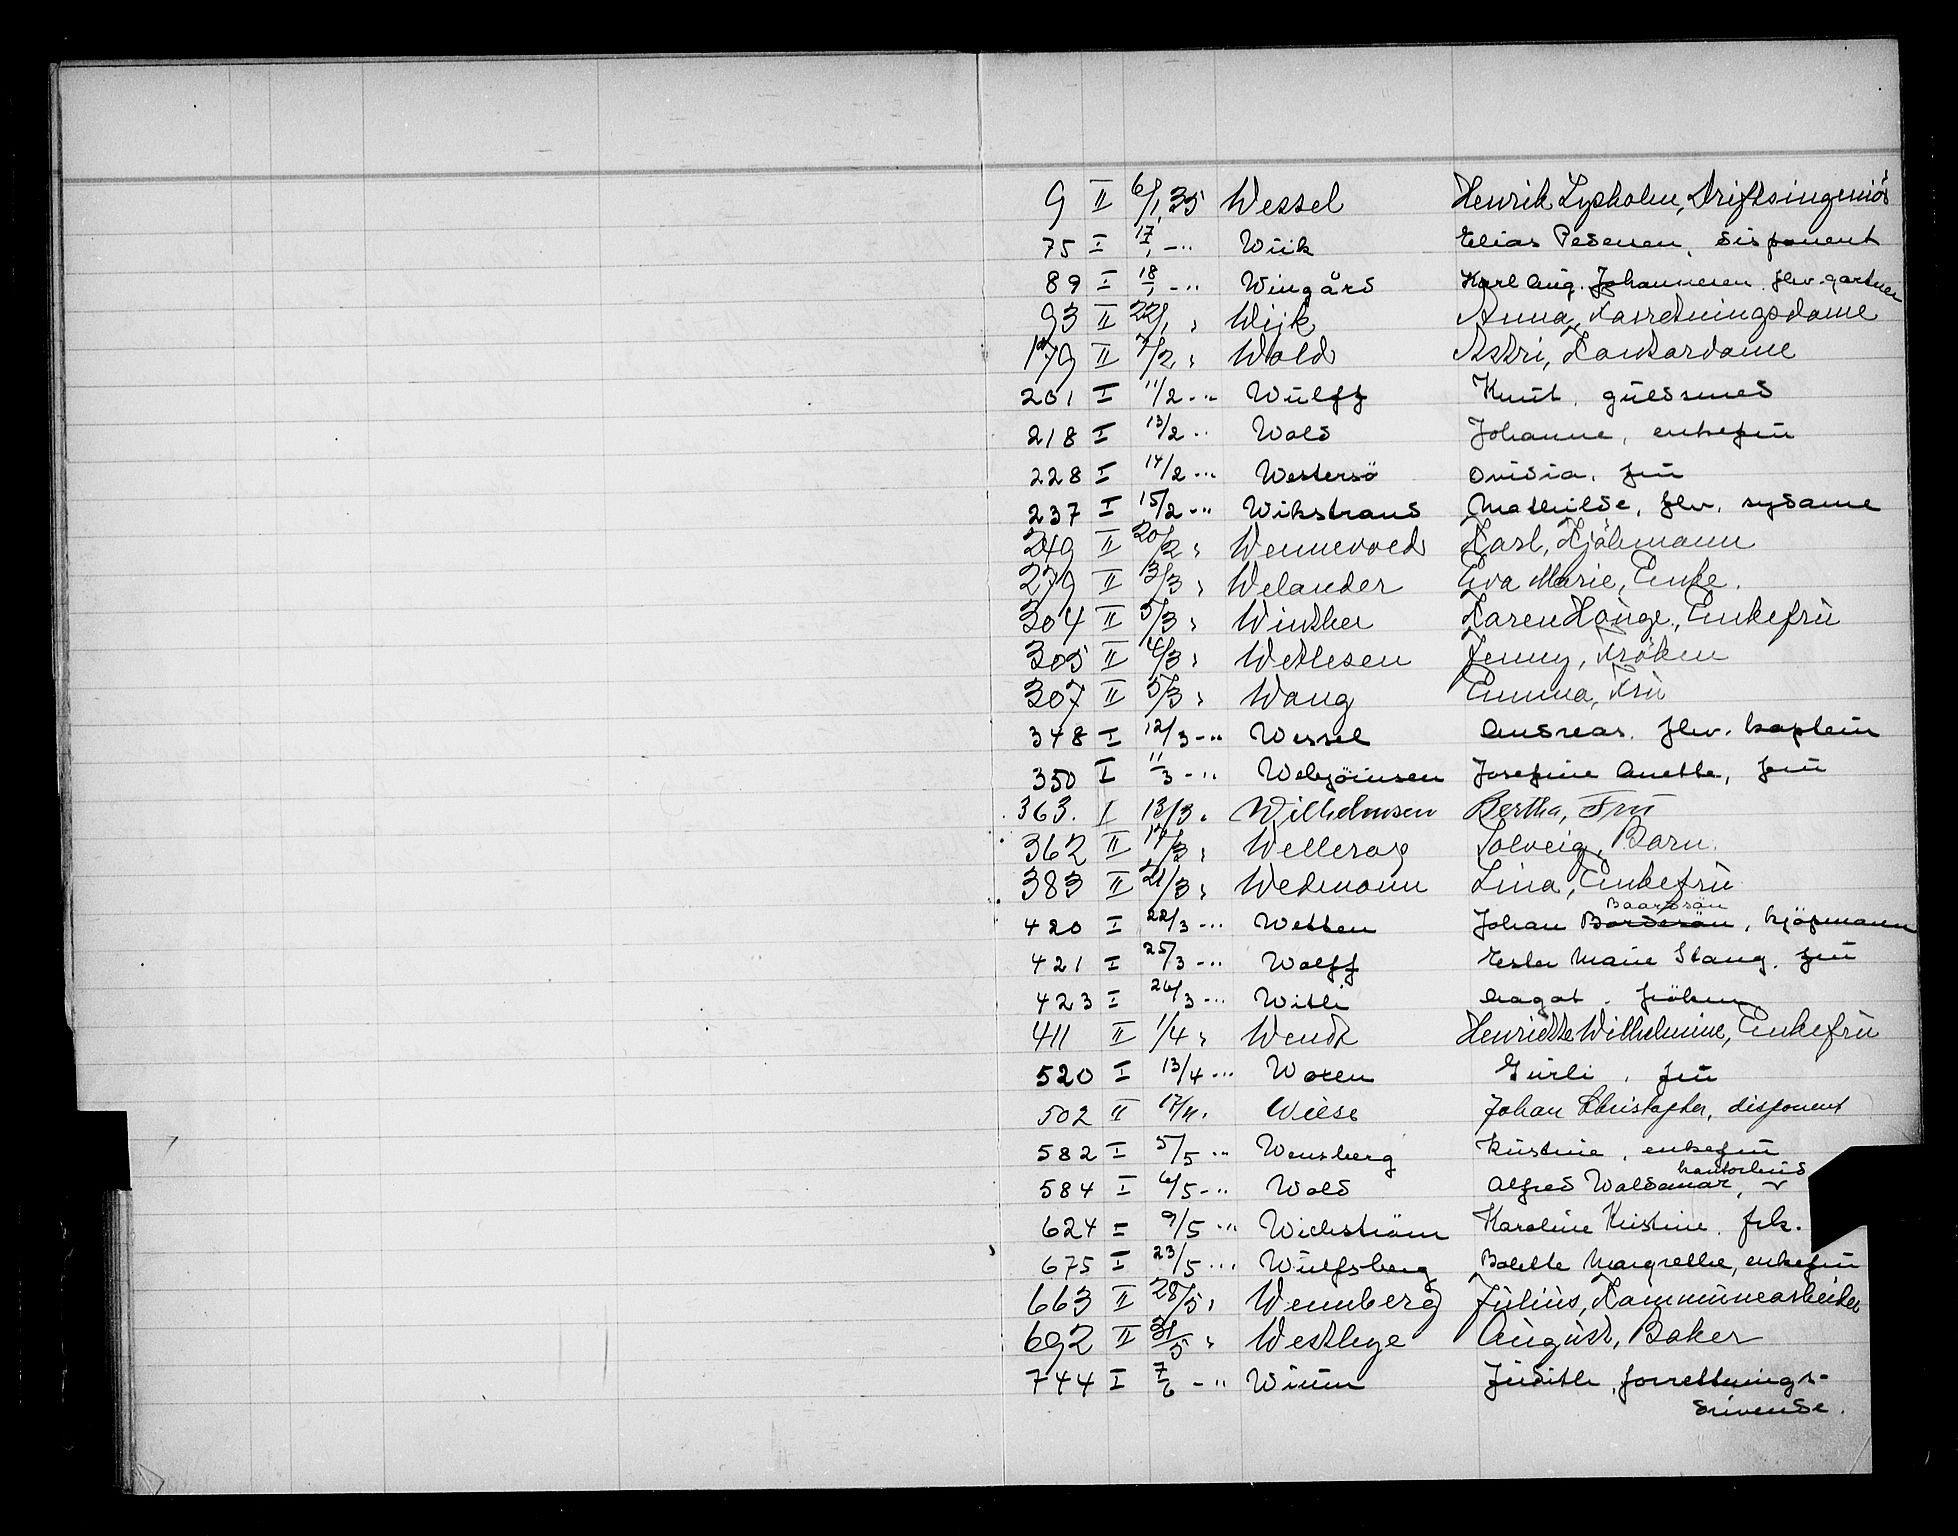 9 II 6/1 35 Wessel Henrik Lysholm, Driftsingeniör
75 I 17/1 -"- Wiik Elias Pedersen, disponent
89 I 18/1 -"- Wingård Karl Aug. Johannesen fhv. gartner
93 II 22/1 " Wijk Anna, Forretningsdame
179 II 7/2 " Wold Astri, Kontordame
201 I 11/2 -"- Wulff Knut, guldsmed
218 I 13/2 -"- Wold Johanne, enkefru
228 I 14/2 -"- Westersö Ovidia, fru
237 I 15/2 -"- Wikstrand Mathilde, fhv. sydame
249 II 20/2 " Wennevold Karl, Kjöbmann
279 II 3/3 " Welander Eva Marie, Enke.
304 II 5/3 " Winther Karen Hauge, Enkefru
305 II 4/3 " Wetlesen Jenny, Fröken
307 II 5/3 " Wang Emma, Fru
348 I 12/3 -"- Wessel Andreas, fhv. kaptein
350 I 11/3 -"- Webjörnsen Josefine Anette, fru
363. I 13/3 " Wilhelmsen Bertha, Fru
362 II 14/3 " Wellerop Solveig, Barn.
383 II 21/3 " Wedmann Lina, Enkefru
Baardsön
420 I 22/3 -"- Wetten Johan Bordesön, kjöpmann
421 I 25/3 -"- Wolff Ester Marie Stang, fru
423 I 26/3 -"- With Aagot, fröken
411 II 1/4 " Wendt Henriette Wilhelmine, Enkefru
520 I 13/4 -"- Woxen Gurli, fru
502 II 17/4 " Wiese Johan Christopher, disponent
582 I 5/5 -"- Wensberg Kristine, enkefru
kontorbud
584 I 6/5 -"- Wold Alfred Waldemar,
624 I 9/5 -"- Wickström Karoline Kristine, frk.
675 I 23/5 -"- Wulfsberg Bolette Margrethe, enkefru
663 II 28/5 " Wennberg Julius, Kommunearbeider
692 II 31/5 " Westlye August, Baker
744 I 7/6 -"- Wium Judith, forretnings-
drivende.